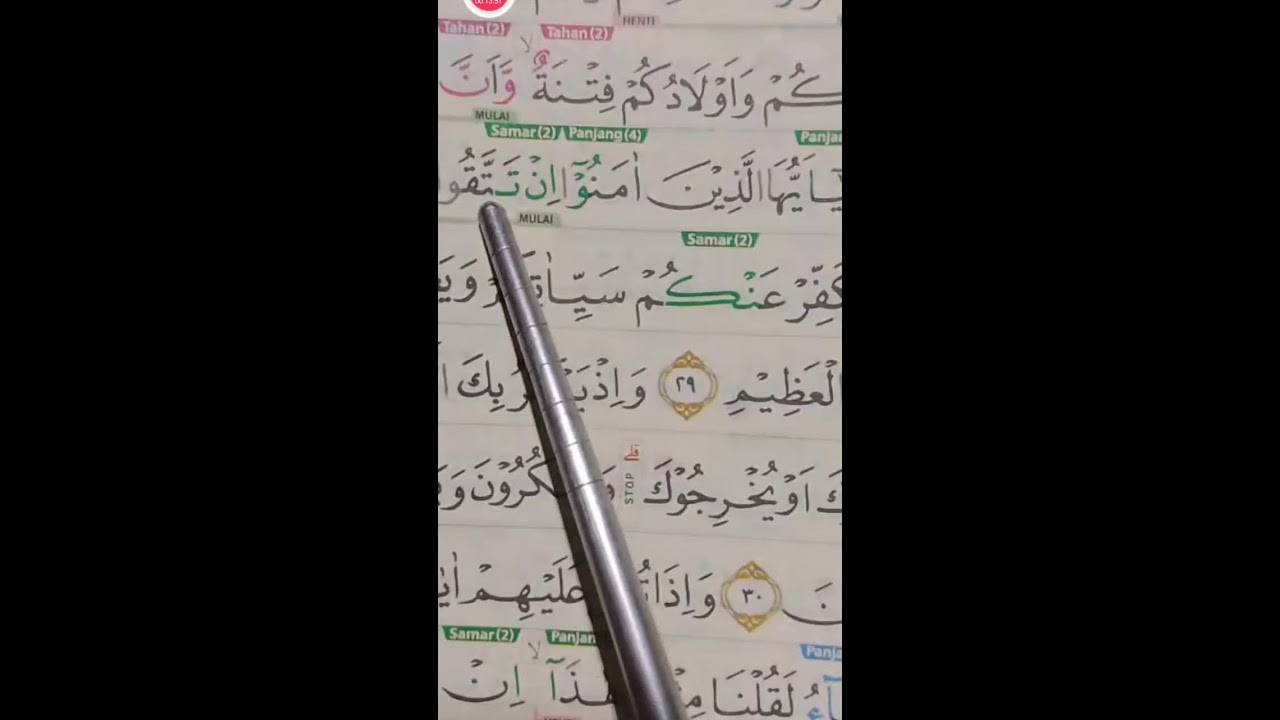 00:13:51
HENTI
Tahan (2) Tahan (2)
كُمْ وَاَوْلَادُكُمْ فِتْنَةٌ ۙ وَّاَنَّ
MULAI
Samar (2) Panjang (4) Panja
يٰٓاَيُّهَا الَّذِيْنَ اٰمَنُوْٓا اِنْ تَتَّقُوا
MULAI
Samar (2)
كَفِّرْ عَنْكُمْ وَيَ
الْعَظِيْمِ ٢٩ وَاِذْ بِكَ
كَ اَوْ يُخْرِجُوْكَ ۗ
STOP
نَ ٣٠ وَاِذَا عَلَيْهِمْ اٰيٰ
Samar (2) Panjan Panja
لَقُلْنَا هٰذَآ ۙ اِنْ